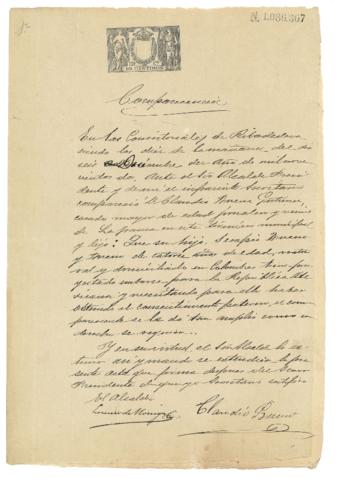 N. 1.086.367
10 CENTIMOS
Comparecencia
En las Consistoriales de Ribadedeva
siendo las diez de la mañana del dia
seis Diciembre del Año de mil nove
cientos dos, Ante el Sr Alcalde Presi
dente y de mi el infrascrito Secretario
compareció D. Claudio Bueno Gutierrez,
casado mayor de edad jornalero y vecino
de La Franca en este término municipal
y dijo: Que su hijo, Serafin Bueno
y de catorce años de edad, natu
ral y domiciliado en Colombres tiene pro
yectado embarcar para la República Me
jicana y necesitando para ello haber
obtenido el consentimiento paterno, el com
pareciente se lo da tan amplio como en
derecho se requiere.
Y en su virtud, el Sr. Alcalde lo es
timó asi y mandó se extendiera la pre
sente acta que firma despues del Señor
Presidente de que yo Secretario certifico
El Alcalde
Claudio Bueno